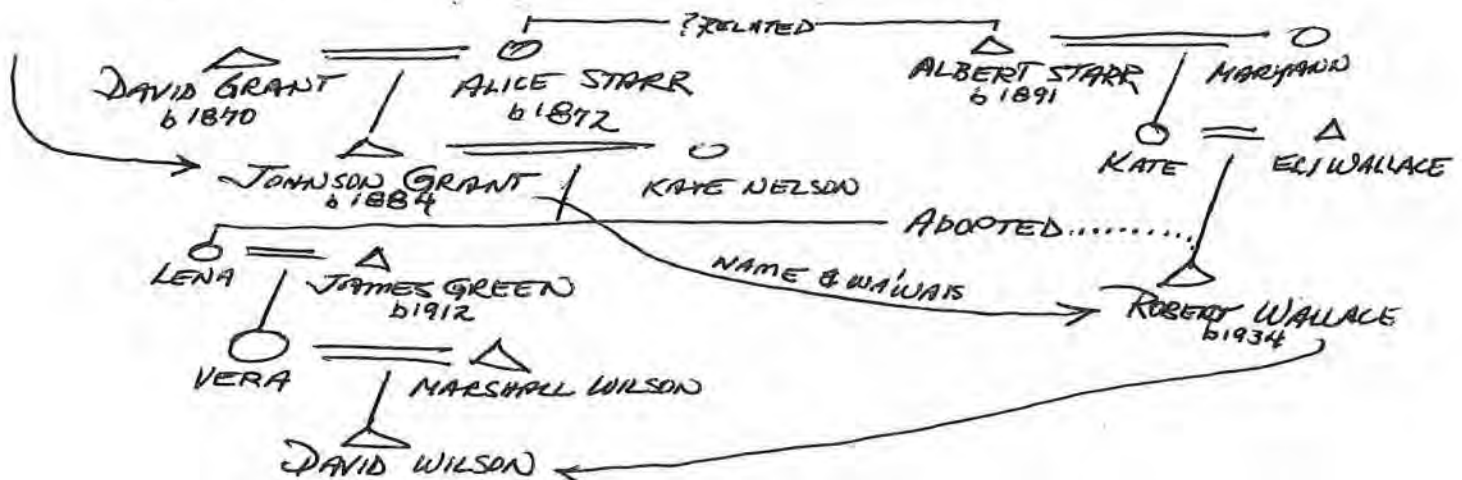 ?RELATED
DAVID GRANT
b 1870
ALICE STARR
b 1872
ALBERT STARR
b 1891
MARYANN
JOHNSON GRANT
b 1884
KATE NELSON
KATE
ELI WALLACE
ADOPTED
LENA
JAMES GREEN
b 1912
NAME & WA'WAIS
ROBERT WALLACE
b 1934
VERA
MARSHALL WILSON
DAVID WILSON